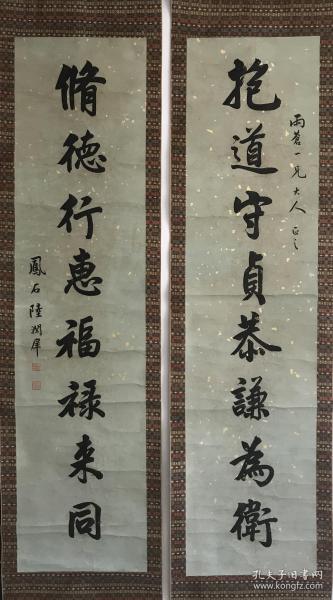 雨蒼一兄大人正之
抱道守貞恭謙為衛
脩徳行惠福禄来同
鳳石陸潤庠
孔夫子旧书网
www.kongfz.com